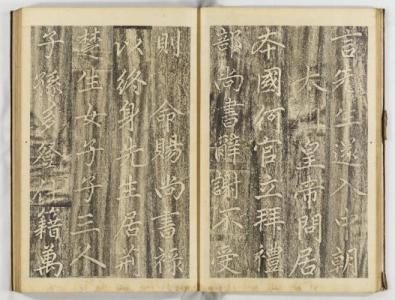 言先生遂入朝
大皇帝問居
本國何官立拜禮
部尚書辭謝不受
則命賜尚書祿
以終身先生居荊
楚女子子三人
子孫多登仕籍萬